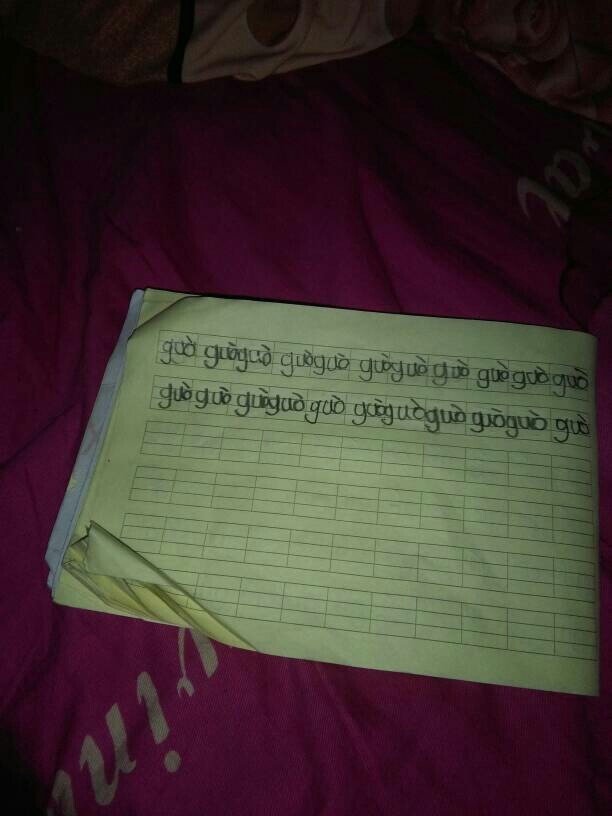 guò guòguò guòguò guòguò guò guò guò guò
guò guò guòguò guò guòguòguò guòguò guò